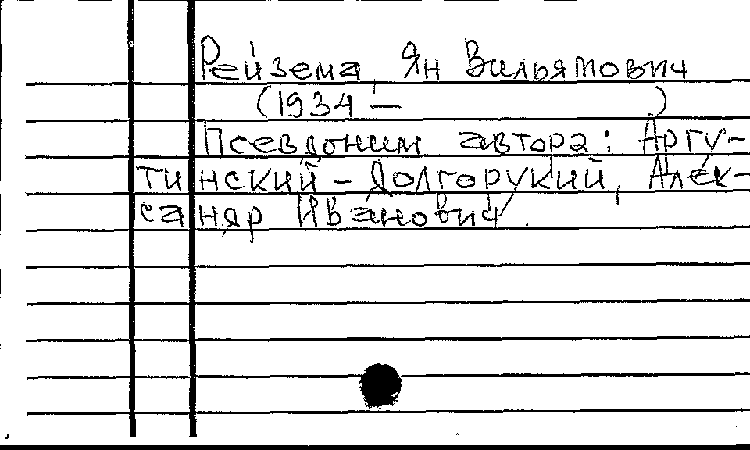 Рейзема, Ян Вильямович
(1934 — )
Псевдоним автора: Аргу-
тинский - Долгорукий, Алек-
сандр Иванович.